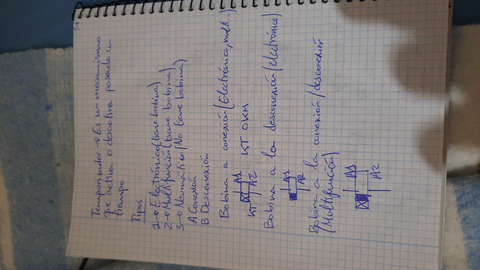 Temporizador → Es un mecanismo
que activa o desactiva pasado un
tiempo
Tipos
1→ Electrónico (tiene bobina)
2→ Multifunción (tiene bobina)
3→ Neumático (No tiene bobina)
A Conexión
B Desconexión
Bobina a conexión (Electrónico, mult.)
A1
KT A2 KT OKM
Bobina a la desconexión (electrónico)
A1
A2
Bobina a la conexión / desconexión
(Multifunción)
A1
A2